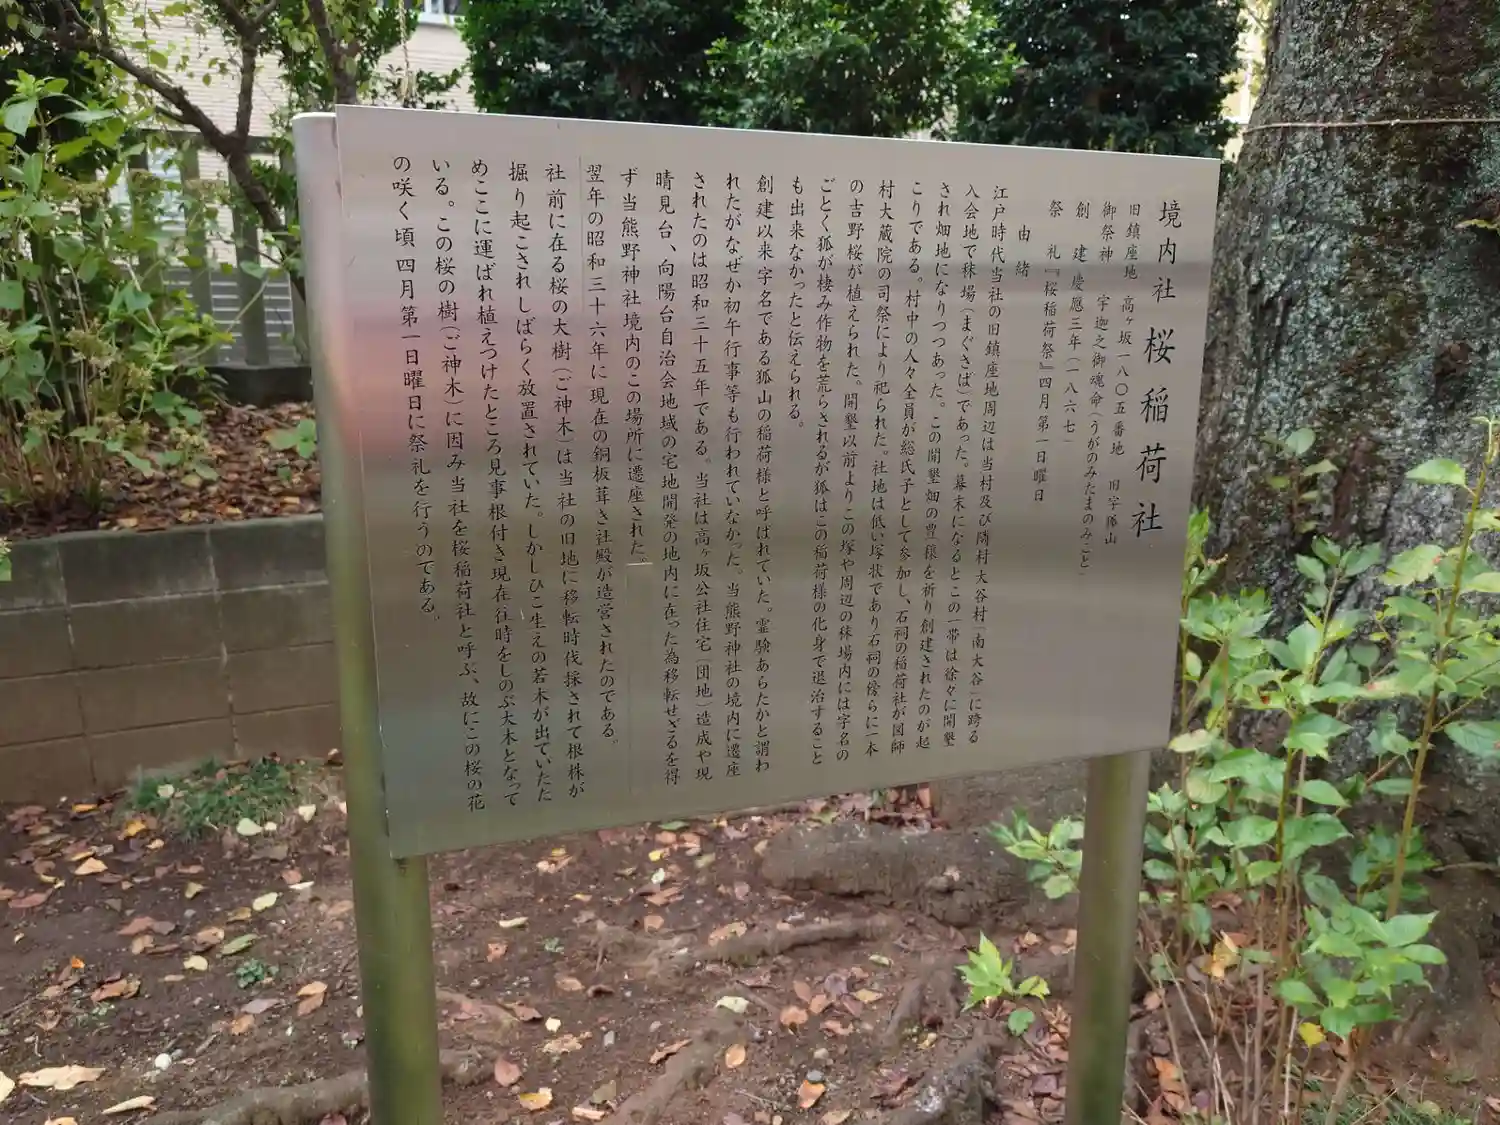 境内社 桜稲荷社
旧鎮座地 高ヶ坂一八〇五番地 旧字孤山
御祭神 宇迦之御魂命(うがのみたまのみこと)
創 建 慶應三年(一八六七)
祭 礼『桜稲荷祭』四月第一日曜日
由 緒
江戸時代当社の旧鎮座地周辺は当村及び隣村大谷村(南大谷)に跨る
入会地で秣場(まぐさば)であった。幕末になるとこの一帯は徐々に開墾
され畑地になりつつあった。この開墾畑の豊穣を祈り創建されたのが起
こりである。村中の人々全員が総氏子として参加し、石祠の稲荷社が図師
村大蔵院の司祭により祀られた。社地は低い塚状であり石祠の傍らに一本
の吉野桜が植えられた。開墾以前よりこの塚や周辺の秣場内には字名の
ごとく狐が棲み作物を荒らされるが狐はこの稲荷様の化身で退治すること
も出来なかったと伝えられる。
創建以来字名である狐山の稲荷様と呼ばれていた。霊験あらたかと謂わ
れたがなぜか初午行事等も行われていなかった。当熊野神社の境内に遷座
されたのは昭和三十五年である。当社は高ヶ坂公社住宅(団地)造成や現
晴見台、向陽台自治会地域の宅地開発の地内に在った為移転せざるを得
ず当熊野神社境内のこの場所に遷座された。
翌年の昭和三十六年に現在の銅板葺き社殿が造営されたのである。
社前に在る桜の大樹(ご神木)は当社の旧地に移転時伐採されて根株が
掘り起こされしばらく放置されていた。しかしひこ生えの若木が出ていたた
めここに運ばれ植えつけたところ見事根付き現在往時をしのぶ大木となって
いる。この桜の樹(ご神木)に因み当社を桜稲荷社と呼ぶ、故にこの桜の花
の咲く頃四月第一日曜日に祭礼を行うのである。